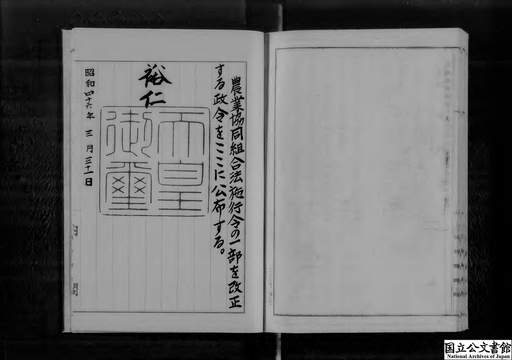 農業協同組合法施行令の一部を改正
する政令をここに公布する。
裕仁
天皇
御璽
昭和四十六年三月三十一日
国立公文書館
National Archives of Japan